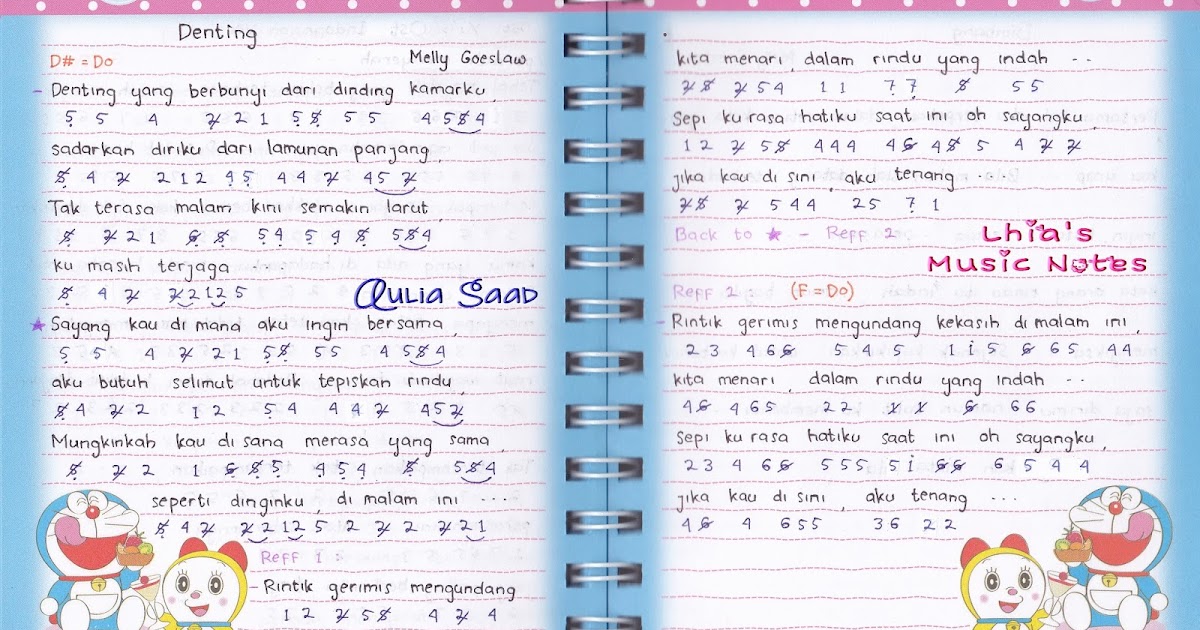 Denting
D# = Do Melly Goeslaw
- Denting yang berbunyi dari dinding kamarku,
5 5 4 2̸ 2 1 5 5̸ 5 5 4 5 5̸ 4
sadarkan diriku dari lamunan panjang,
5̸ 4 2̸ 2 1 2 4 5 4 4 2̸ 4 5 2̸
Tak terasa malam kini semakin larut,
5̸ 2̸ 2 1 6̸ 5̸ 5 4 5 4 5̸ 5 5̸ 4
ku masih terjaga
5̸ 4 2̸ 2̸ 2 1 2 5
Aulia Saad
★ Sayang kau di mana aku ingin bersama,
5 5 4 2̸ 2 1 5 5̸ 5 5 4 5 5̸ 4
aku butuh selimut untuk tepiskan rindu,
5̸ 4 2̸ 2 1 2 5 4 4 4 2̸ 4 5 2̸
Mungkinkah kau di sana merasa yang sama,
5̸ 2̸ 2 1 6̸ 5̸ 5 4 5 4 5̸ 5 5̸ 4
seperti dinginku, di malam ini ....
5̸ 4 2̸ 2̸ 2 1 2 5 2 2̸ 2 2̸ 2 1
Reff 1 :
- Rintik gerimis mengundang
1 2 2̸ 5 5̸ 4 2̸ 4
kita menari, dalam rindu yang indah ..
2̸ 5̸ 2̸ 5 4 1 1 7 7 5̸ 5 5
Sepi ku rasa hatiku saat ini oh sayangku,
1 2 2̸ 5 5̸ 4 4 4 4 6̸ 4 5̸ 5 4 2̸ 2̸
jika kau di sini, aku tenang
2̸ 5̸ 2̸ 5 4 4 2 5 7 1
Back to ★ - Reff 2
Lhia's
Music Notes
Reff 2 : (F = Do)
- Rintik gerimis mengundang kekasih di malam ini,
2 3 4 6 6̸ 5 4 5 1 i 5 6̸ 6 5 4 4
kita menari, dalam rindu yang indah ..
4 6̸ 4 6 5 2 2 1̸ 1̸ 6̸ 6 6
Sepi ku rasa hatiku saat ini oh sayangku,
2 3 4 6 6̸ 5 5 5 5 i 6̸ 6̸ 6 5 4 4
jika kau di sini, aku tenang ...
4 6̸ 4 6 5 5 3 6 2 2